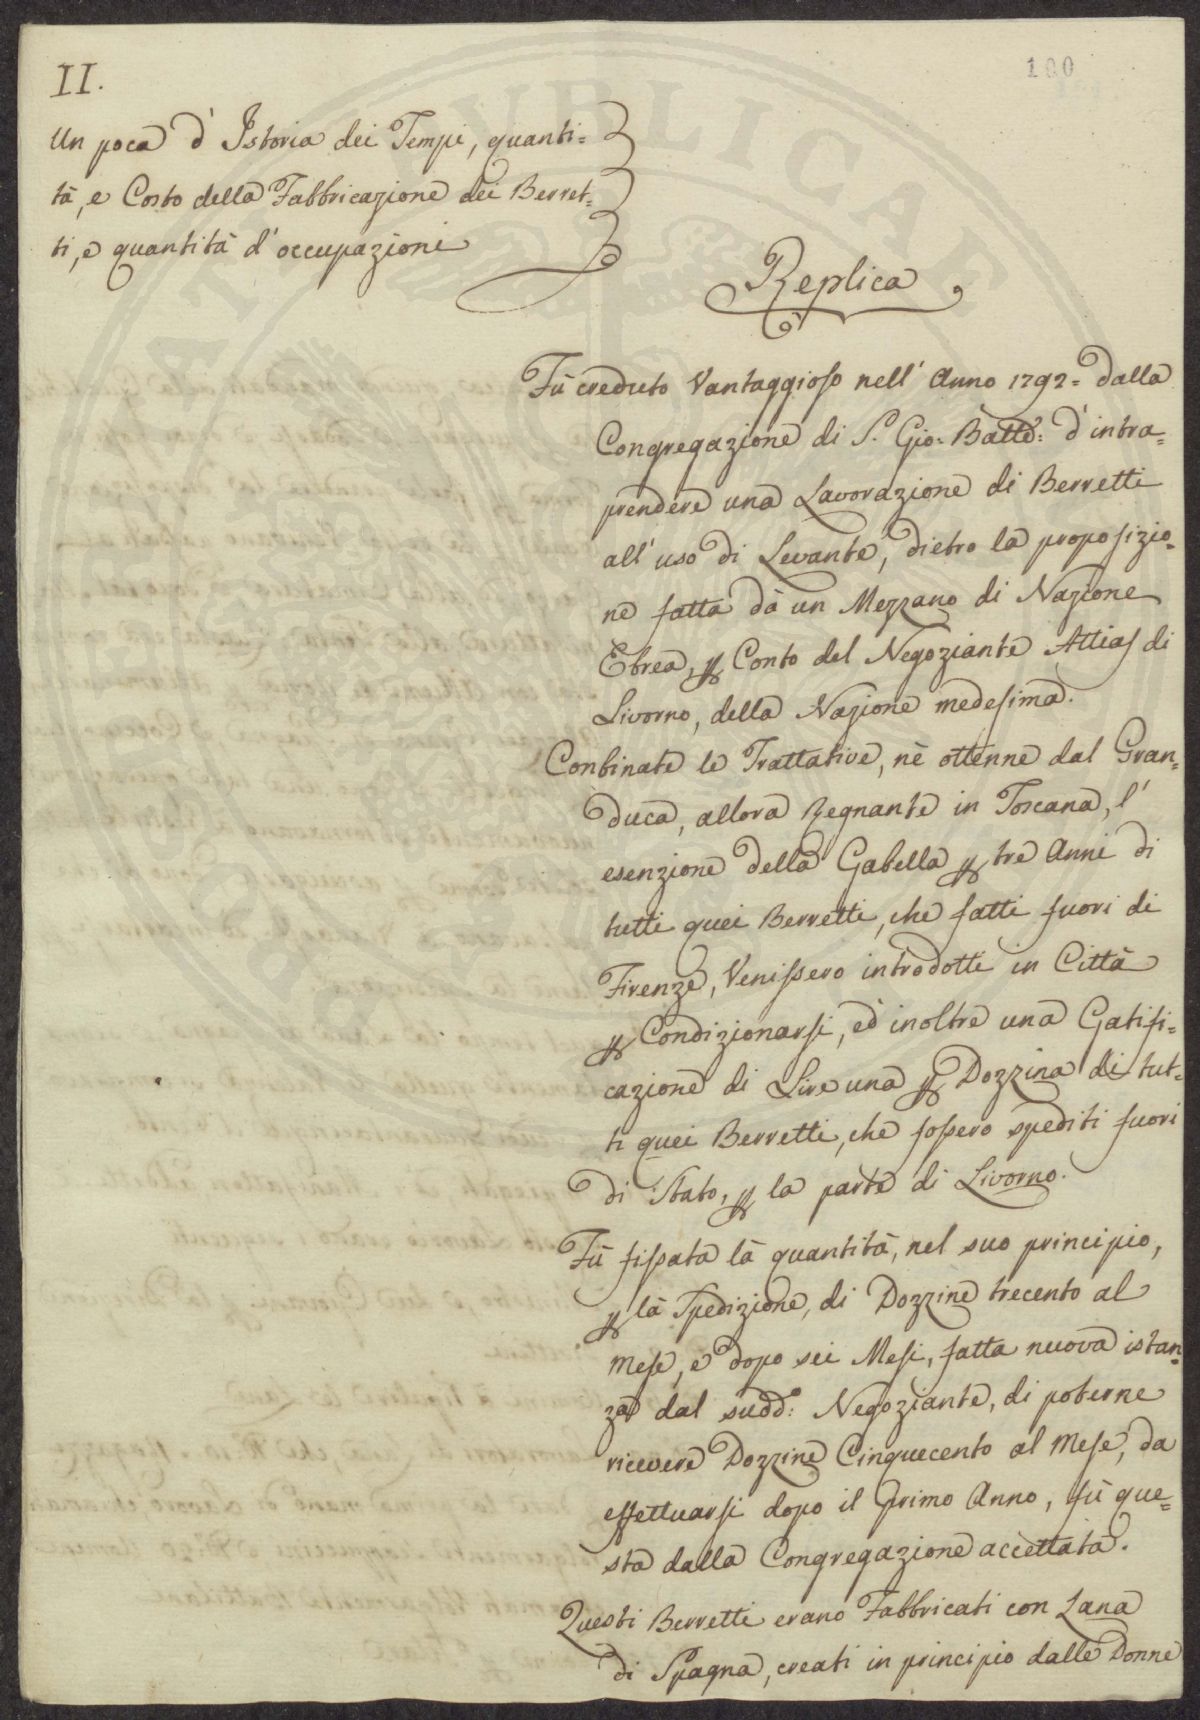 II.
100
Un poca d' Istoria dei Tempi, quanti=
tà, e Costo della Fabbricazione dei Berret=
ti, e quantità d' occupazioni
Replica
Fù creduto Vantaggioso nell' Anno 1792= dalla
Congregazione di S. Gio: Batte: d' intra=
prendere una Lavorazione di Berretti
all' uso di Levante, dietro la proposizio=
ne fatta dà un Mezzano di Nazione
Ebrea, p Conto del Negoziante Attias di
Livorno, della Nazione medesima.
Conbinate le Trattative, nè ottenne dal Gran=
duca, allora Regnante in Toscana, l'
esenzione della Gabella p tre Anni di
tutti quei Berretti, che fatti fuori di
Firenze, Venissero introdotti in Città
p Condizionarsi, ed inoltre una Gatifi=
cazione di Lire una p Dozzina di tut=
ti quei Berretti, che fossero spediti fuori
di Stato, p la parte di Livorno.
Fù fissata là quantità, nel suo principio,
p là Spedizione, di Dozzine trecento al
mese, e dopo sei Mesi, fatta nuova istan=
za dal sudd: Negoziante, di poterne
ricevere Dozzine Cinquecento al Mese, da
effettuarsi dopo il Primo Anno, fù que=
sta dalla Congregazione accettata.
Questi Berretti erano Fabbricati con Lana
di Spagna, creati in principio dalle Donne